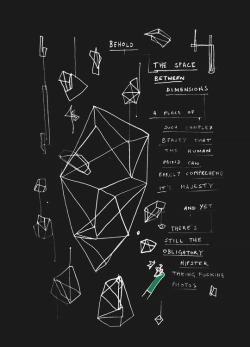 BEHOLD
THE SPACE
BETWEEN
DIMENSIONS
A PLACE OF
SUCH COMPLEX
BEAUTY THAT
THE HUMAN
MIND CAN
BARELY COMPREHEND
IT'S MAJESTY
AND YET
THERE'S
STILL THE
OBLIGATORY
HIPSTER
TAKING FUCKING
PHOTOS